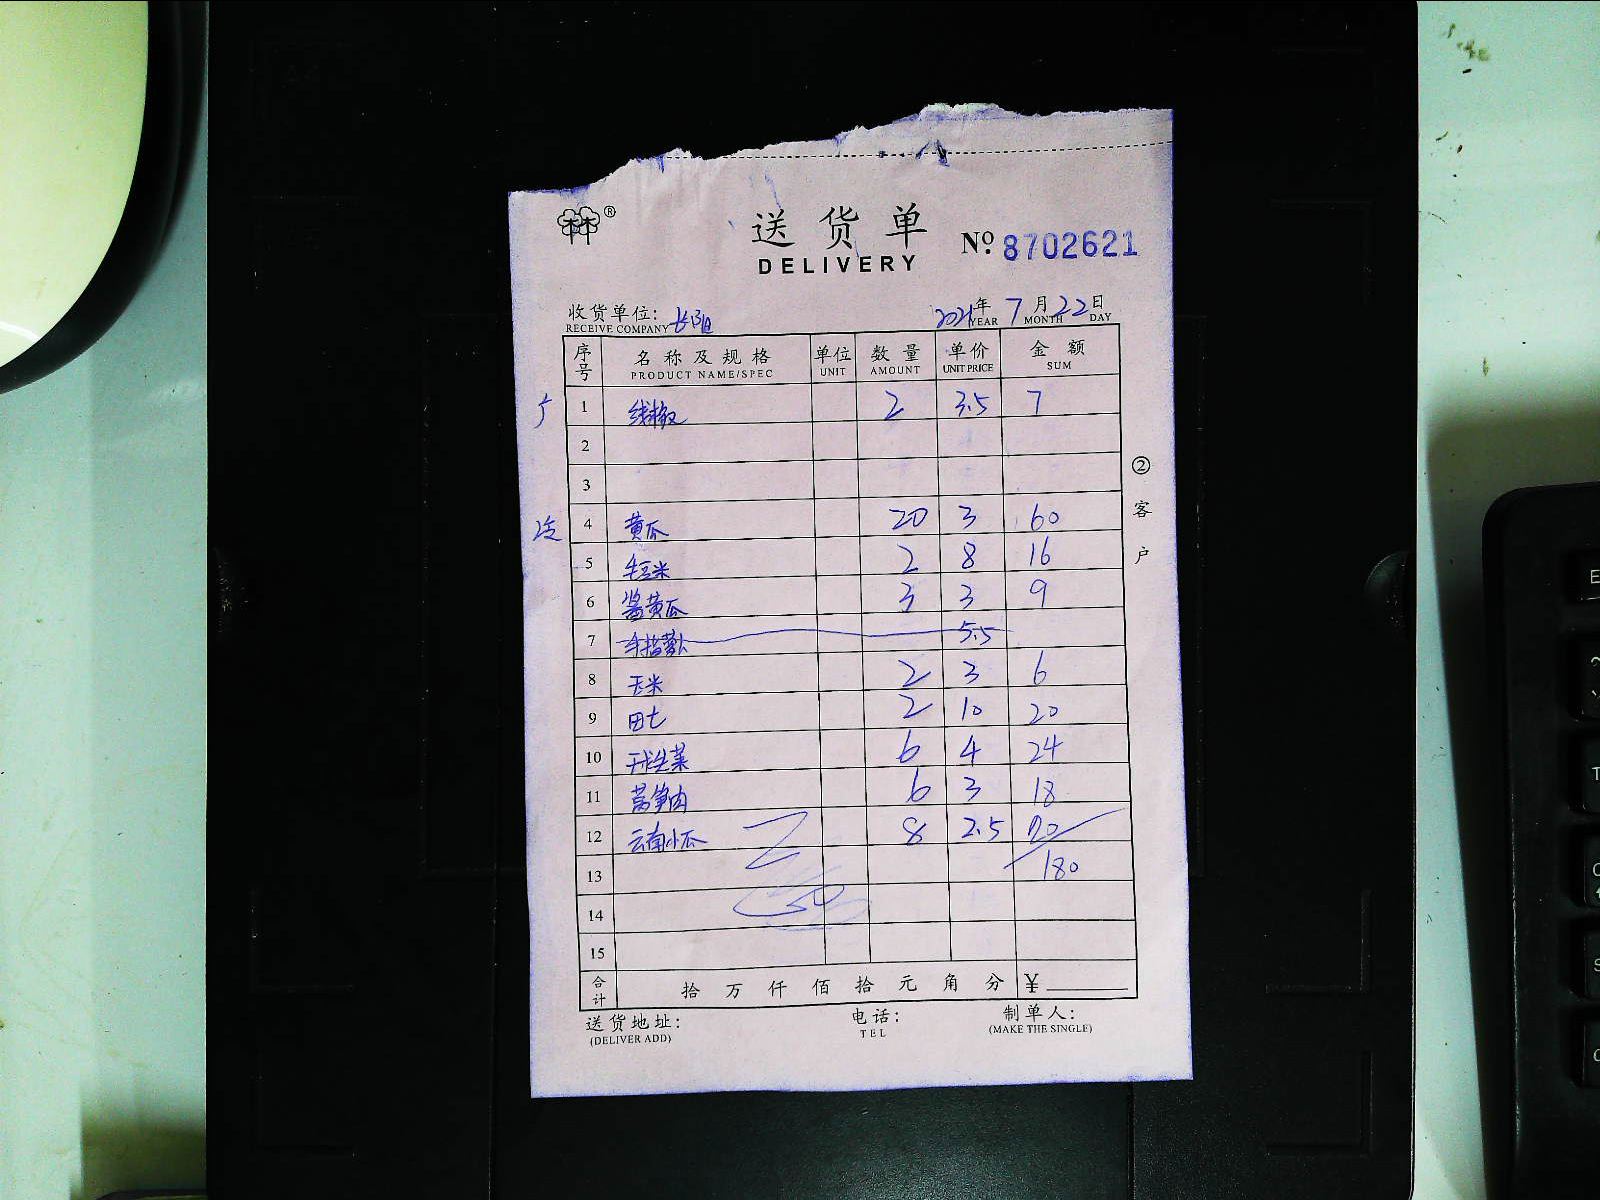 送货单
DELIVERY
№ 8702621
收货单位:
RECEIVE COMPANY
2021年 7月 22日
YEAR MONTH DAY
序号 名称及规格 单位 数量 单价 金额
PRODUCT NAME/SPEC UNIT AMOUNT UNIT PRICE SUM
1 线椒 2 3.5 7
2
3
4 黄瓜 20 3 60
5 毛豆米 2 8 16
6 酱黄瓜 3 3 9
7 5.5
8 玉米 2 3 6
9 田七 2 10 20
10 球生菜 6 4 24
11 莴笋肉 6 3 18
12 云南小瓜 8 2.5 20
13 180
14
15
合计 拾万仟佰拾元角分 ¥
送货地址: 电话: 制单人:
(DELIVER ADD) TEL (MAKE THE SINGLE)
②客户